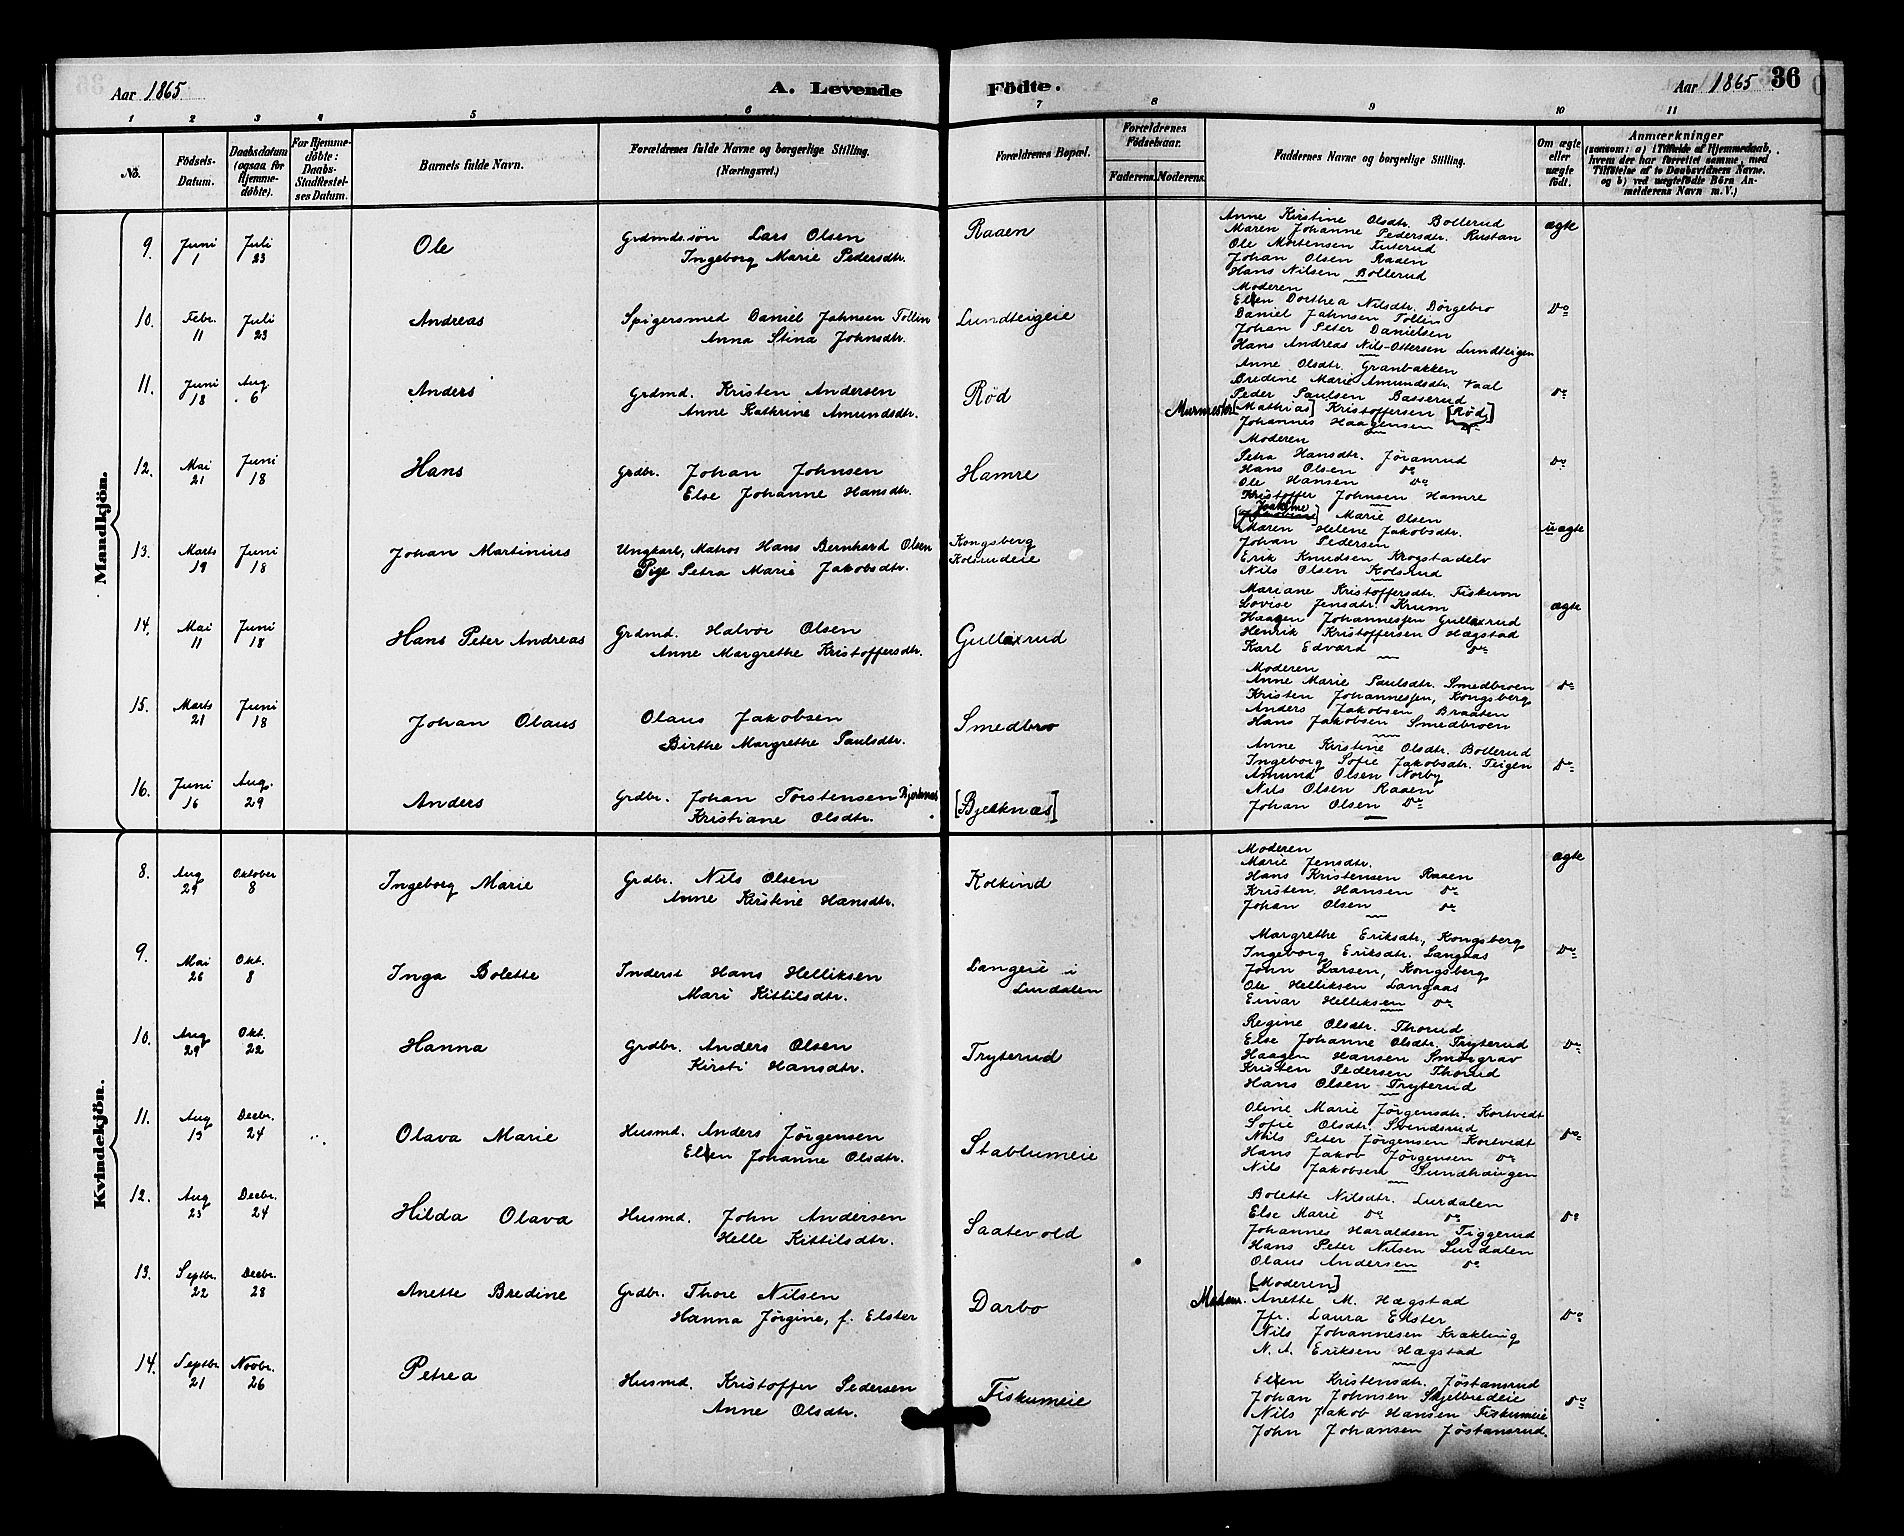 Aar 1865 A. Levende Födte. Aar 1865 36
1 2 3 4 5 6 7 8 9 10 11
No. Födsels-Datum. Daabsdatum (ogsaa för Hjemmedöbte). For Hjemmedöbte: Daabs-Stadfæstelses Datum. Barnets fulde Navn. Forældrenes fulde Navne og borgerlige Stilling. (Næringsvei.) Forældrenes Bopæl. Forældrenes Födselsaar. Faderens. Moderens. Faddernes Navne og borgerlige Stilling. Om ægte eller uægte födt. Anmærkninger (saasom: a) i Tilfælde af Hjemmedaab, hvem der har forrettet samme, med Tilföielse af to Daabsvidners Navne, og b) ved uægtefödte Börn Anmelderens Navn m. V.)
Mandkjön.
9. Juni 1 Juli 23 Ole Grdmds.søn Lars Olsen Raaen ægte
Ingeborg Marie Pedersdtr.
Anne Kirstine Olsdtr. Bollerud
Maren Johanne Pedersdtr. Rustan
Ole Mortensen Tuterud
Johan Olsen Raaen
Hans Nilsen Bollerud
10. Febr. 11 Juli 23 Andreas Spigersmed Daniel Jahnsen Tollin Lundteigeie Do
Anna Stina Johnsdtr.
Moderen
Ellen Dorthea Nilsdtr. Börgebro
Daniel Jahnsen Tollin
Johan Peter Danielsen
Hans Andreas Nils-Ottersen Lundteigen
11. Juni 18 Aug. 6 Anders Grdmd. Kristen Andersen Rød Do
Anne Kathrine Amundsdtr.
Anne Olsdtr. Granbakken
Bredine Marie Amundsdtr. Vaal
Peder Paulsen Basserud
Murmester [Mathias] Kristoffersen [Rød]
Johannes Haagensen Do
12. Mai 21 Juni 18 Hans Grdbr. Johan Johnsen Hamre Do
Else Johanne Hansdtr.
Moderen
Petra Hansdtr. Jöranrud
Hans Olsen Do
Ole Hansen Do
Kristoffer Johnsen Hamre
13. Marts 19 Juni 18 Johan Martinius Ungkarl, Matros Hans Bernhard Olsen Kongsberg uægte
Pige Petra Marie Jakobsdtr. Kolsrudeie
Marie Olsen
Maren Helene Jakobsdtr.
Johan Pedersen
Erik Knudsen Krogstadelv
Nils Olsen Kolsrud
14. Mai 11 Juni 18 Hans Peter Andreas Grdmd. Halvor Olsen Gullaxrud ægte
Anne Margrethe Kristoffersdtr.
Mariane Kristoffersdtr. Fiskum
Lovise Jensdtr. Krum
Haagen Johannessen Gullaxrud
Henrik Kristoffersen Hægstad
Karl Edvard Do
15. Marts 21 Juni 18 Johan Olaus Olaus Jakobsen Smedbro Do
Birthe Margrethe Paulsdtr.
Moderen
Anne Marie Paulsdtr. Smedbroen
Kristen Johannessen, Kongsberg
Anders Jakobsen Braaten
Hans Jakobsen Smedbroen
16. Juni 16 Aug. 29 Anders Grdbr. Johan Torstensen Bjerknæs [Bjerknæs] Do
Kristiane Olsdtr.
Anne Kristine Olsdtr. Bollerud
Ingeborg Sofie Jakobsdtr. Teigen
Amund Olsen Norby
Nils Olsen Raaen
Johan Olsen Do
Kvindekjön.
8. Aug 29 Oktober 8 Ingeborg Marie Grdbr. Nils Olsen Kolkind ægte
Anne Kirstine Hansdtr.
Moderen
Marie Jensdtr.
Hans Kristensen Raaen
Kristen Hansen Do
Johan Olsen Do
9. Mai 26 Okt. 8 Inga Bolette Inderst Hans Helliksen Langeie i Do
Mari Kittilsdtr. Lurdalen
Margrethe Eriksdtr, Kongsberg
Ingeborg Eriksdtr. Langaas
John Larsen, Kongsberg
Ole Helliksen Langaas
Einar Helliksen Do
10. Aug 29 Okt. 22 Hanna Grdbr. Anders Olsen Tryterud Do
Kirsti Hansdtr.
Regine Olsdtr. Thorud
Else Johanne Olsdtr. Tryterud
Haagen Hansen Smörgrav
Kristen Pedersen Thorud
Hans Olsen Tryterud
11. Aug 13 Decbr. 24 Olava Marie Husmd. Anders Jørgensen Stablumeie Do
Ellen Johanne Olsdtr.
Oline Marie Jørgensdtr. Kortvedt
Sofie Olsdtr. Svendsrud
Nils Peter Jørgensen Kortvedt
Hans Jakob Jørgensen Do
Nils Jakobsen Sundhaugen
12. Aug 23 Decbr. 24 Hilda Olava Husmd. John Andersen Saatevold Do
Helle Kittilsdtr.
Bolette Nilsdtr. Lurdalen
Else Marie Do Do
Johannes Haraldsen Tiggerud
Hans Peter Nilsen Lurdalen
Olaus Andersen Do
13. Septbr. 22 Decbr. 28 Anette Bredine Grdbr. Thore Nilsen Darbo Do
Hanna Jørgine, f. Elster
[Moderen]
Madam Anette M. Hægstad
Jfr. Laura Elster
Nils Johannesen Krækling
N. A. Eriksen Hægstad
14. Septbr 21 Novbr. 26 Petrea Husmd. Kristoffer Pedersen Fiskumeie Do
Anne Olsdtr.
Ellen Kristensdtr. Jøstansrud
Johan Johnsen Skjelbredeie
Nils Jakob Hansen Fiskumeie
John Johansen Jøstansrud.